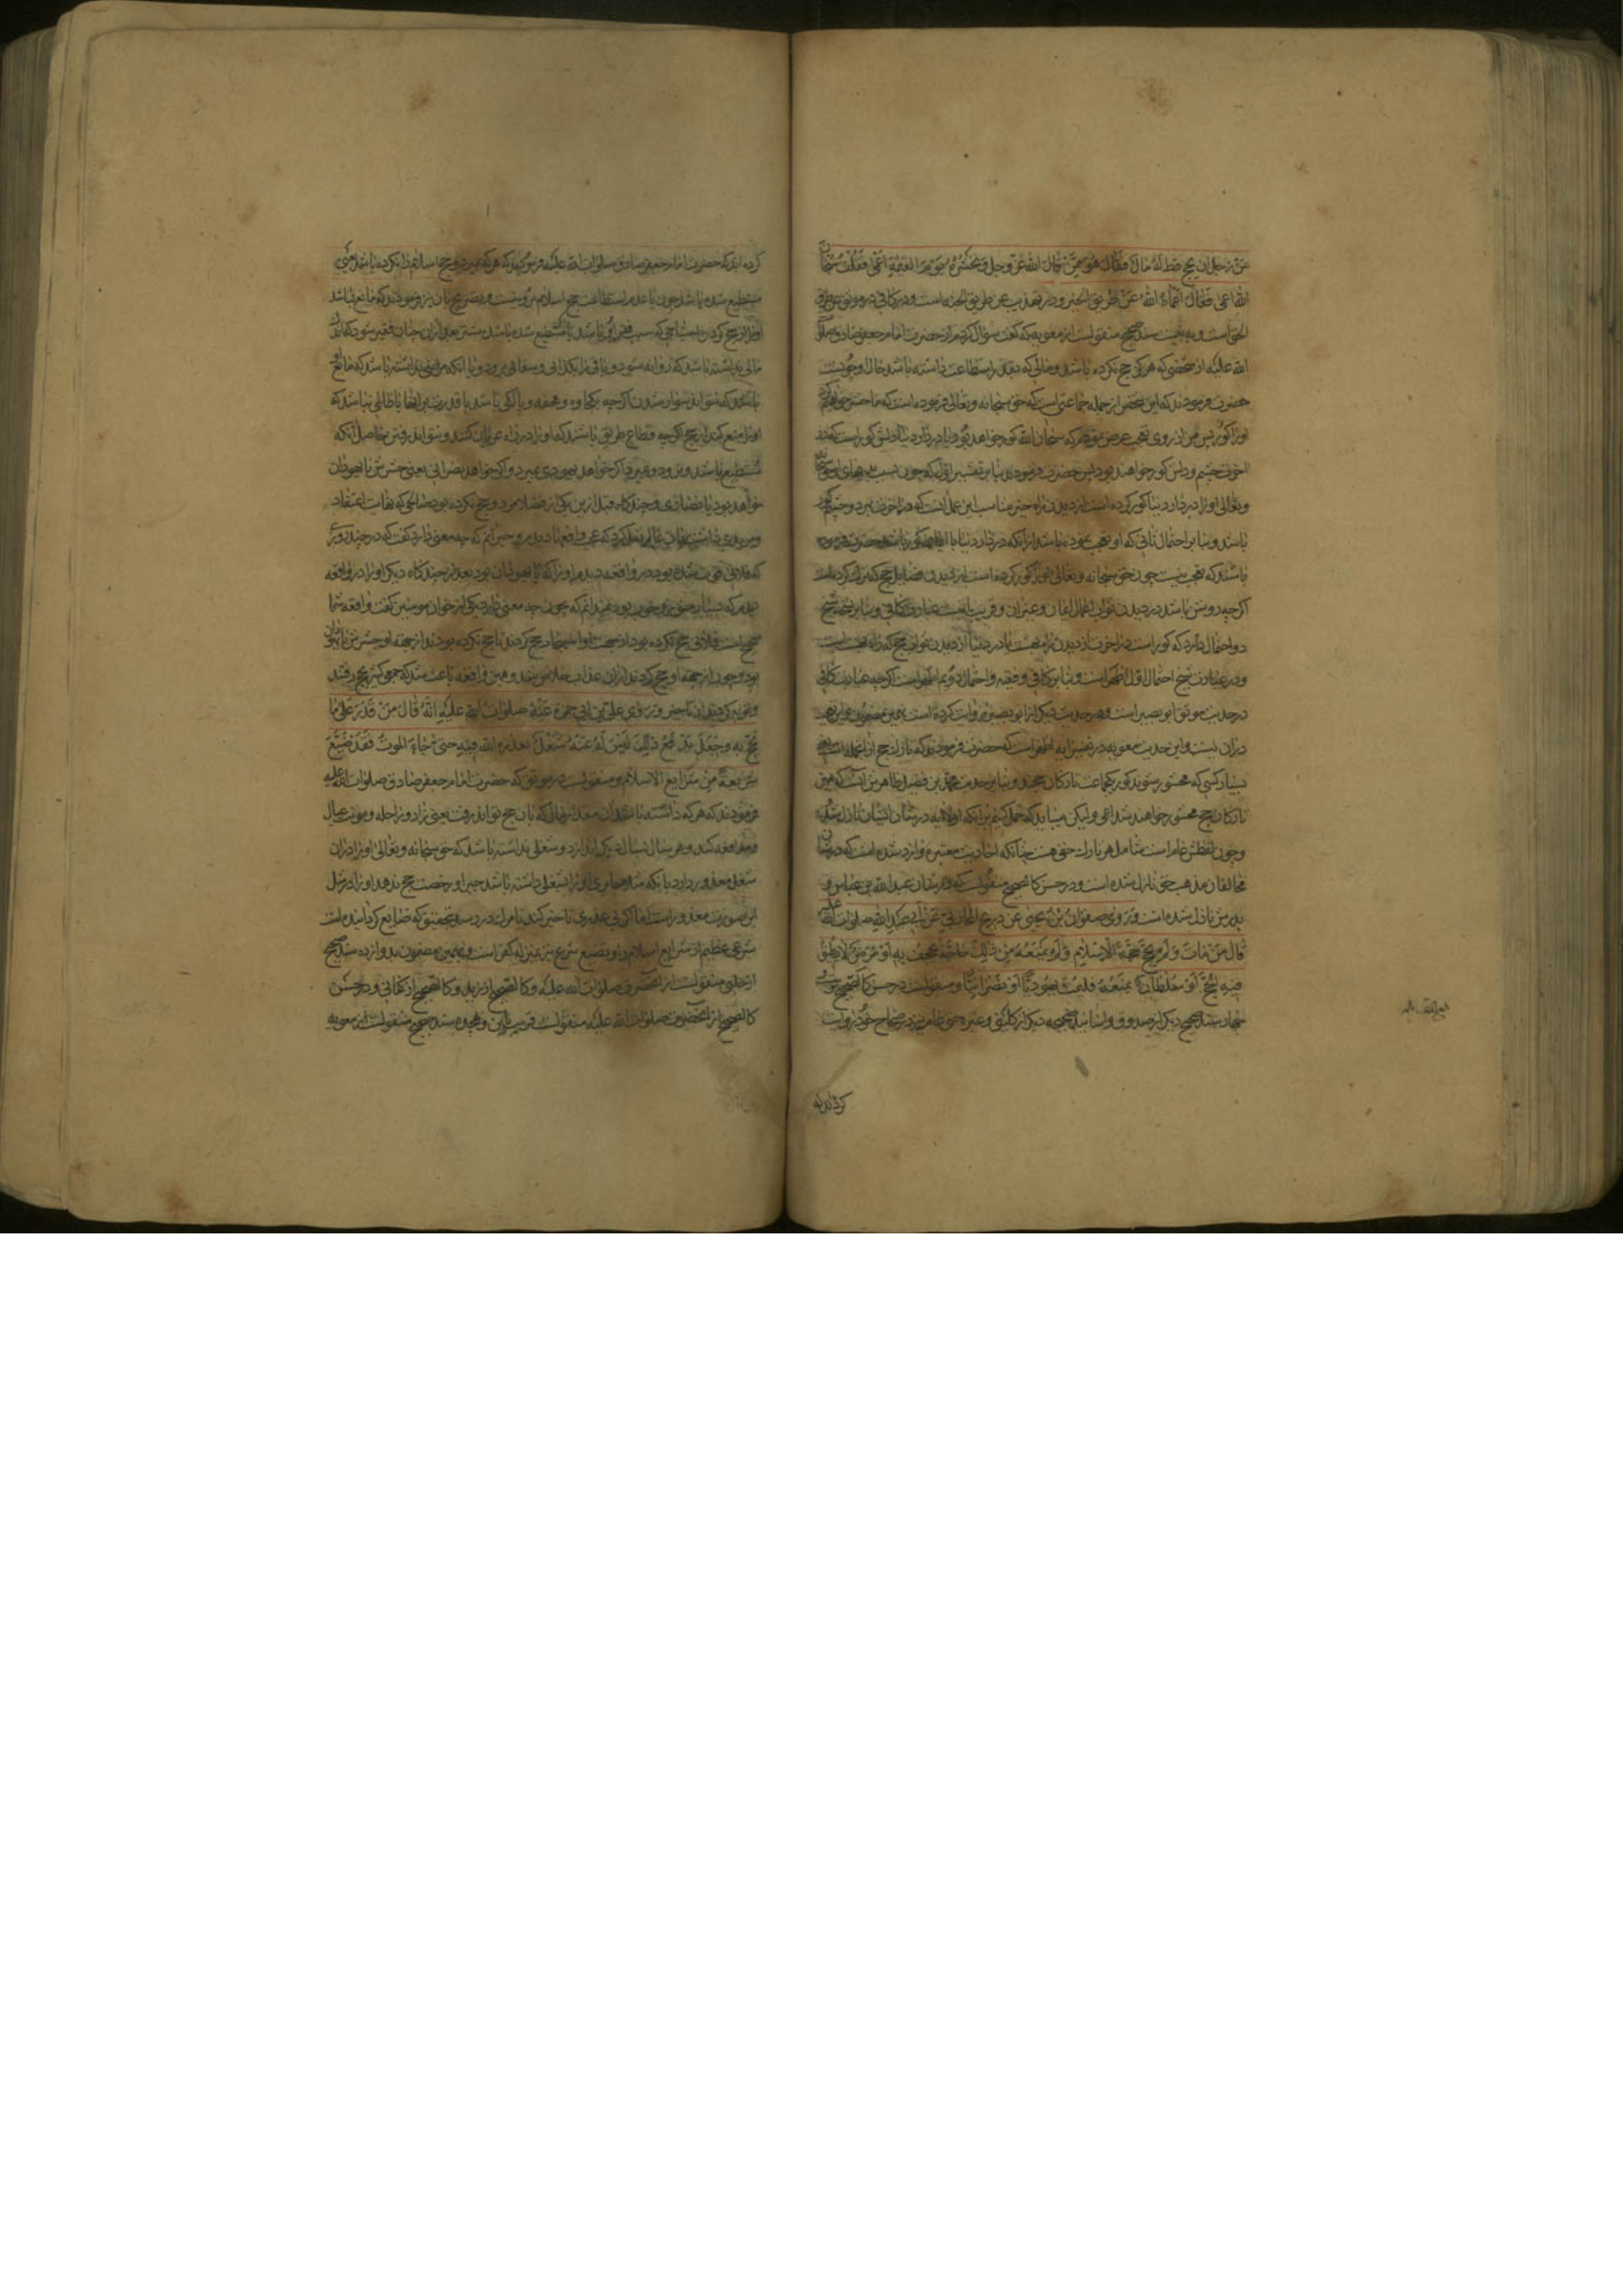 عن رجل لم یحج قط له مال فقال هو ممن قال الله عز وجل و نحشره یوم القیمة اعمی فقلت سبحان
الله اعمی فقال اعماه الله عن طریق الخیر و در تهذیب عن طریق الجنه است و در کافی در موثق عن طریق
الحق است و سند صحیح منقولست از معویه که گفت سؤال کردم از حضرت امام جعفر صادق صلوات
الله علیه از شخصی که هرگز حج نکرده باشد و مالی که بقدر استطاعت داشته باشد حال او چونست
حضرت فرمودند که این شخص از جمله جماعتی است که حق سبحانه و تعالی فرموده است که ما حشر خواهیم کرد
او را کور پس من از روی تعجب عرض نمودم که سبحان الله کور خواهد بود یا در دار دنیا دلش کور است که در
آخرت چشم و دلش کور خواهند بود پس حضرت فرمودند بنابر تفسیر اول که چون بسبب بدیهای او حق سبحانه
و تعالی او را در دار دنیا کور کرده است از دیدن راه خیر مناسب این عمل آنست که در آخرت نیز دو چشم کور
باشد و بنابر احتمال ثانی که او تعجب نموده باشد از آنکه در دار دنیا با کور باشد حضرت فرموده
باشند که تعجب نیست چون حق سبحانه و تعالی او را کور کرده است از دیدن فضایل حج که ترک کرده است
اگر چه روشن باشد در دیدن ثواب اعمال ایمان و غیر آن و قریب باینست عبارت کافی و بنابر نسخه شیخ
دو احتمال دارد که کور است در آخرت از دیدن راه بهشت یا در دنیا از دیدن ثواب حج که راه بهشت است
و در عبارت شیخ احتمال اول اظهر است و بنابر کافی و فقیه و احتمال دویم اظهر است اگر چه عبارت کافی
در حدیث موثق ابو بصیر است و هر حدیث دیگر از ابو بصیر روایت کرده است همین مضمون و این
در آن نیست و این حدیث معویه در تفسیر آیه اظهر است که حضرت فرمودند که تارک حج از آنجمله است یعنی
بسیار کسی که محشور شوند کور یکجماعت تارکان حجند و بنابر حدیث محمد بن فضیل ظاهرش آنست که همین
تارکان حج محشور خواهند شد اعمی و لیکن میباید که حمل کنیم بر آنکه اولا آیه در شان ایشان نازل شده
و چون لفظش عام است شامل هر تارک حقی هست چنانکه احادیث معتبره وارد شده است که در شان
مخالفان مذهب حق نازل شده است و در حسن کالصحیح منقولست که در شان عبد الله بن عباس و
پدرش نازل شده است و روی صفوان بن یحیی عن ذریح المحاربی عن ابی عبد الله صلوات الله علیه
قال من مات و لم یحج حجة الاسلام و لم یمنعه من ذلک حاجة تجحف به او مرض لا یطیق
فیه الحج او سلطان یمنعه فلیمت یهودیا او نصرانیا و منقولست در حسن کالصحیح
سند صحیح دیگر از صدوق و اسانید صحیحه دیگر از کلینی و غیره حتی عامه نیز در صحاح خود روایت
کرده‌اند که
کرده اند که حضرت امام جعفر صادق صلوات الله علیه فرمودند که هر که بمیرد و حج اسلام را نکرده باشد یعنی
مستطیع شده باشد چون با عدم استطاعت حج اسلام برو نیست و تصریح بآن نیز فرمودند که مانع نباشد
او را از حج کردن احتیاجی که سبب فقر او باشد یا مستطیع شده باشد پیشتر بعد از آن چنان فقیر شود که آن
مالی نداشته باشد که روانه شود و باقی را بگدائی و سقائی برود و یا آنکه مرضی نداشته باشد که مانع او
باشد که نتواند سوار شدن اگر چه بکجاوه و محفه و پالکی باشد یا قدرت بر آنها یا ظالمی نباشد که
او را منع کند از حج اگر چه قطاع طریق باشند که او را در راه عریان کنند و نتواند رفتن حاصل آنکه
مستطیع باشد و نرود و بمیرد اگر خواهد یهودی بمیرد و اگر خواهد نصرانی یعنی حشرش با یهودان
خواهد بود یا نصاری و چند گاه قبل از این یکی از فضلا مرد و حج نکرده بود صالحی که نهایت اعتقاد
و مریدی داشت بآن عالم نقل کرد که عجب واقعه دیدم و حیرانم که چه معنی دارد گفت که در چند روز
که فلانی فوت شده بود در واقعه دیدم او را که با یهودان بود بعد از چند گاه دیگر او را در واقعه
دیدم که بسیار خوب بود نمیدانم که چون چه معنی دارد یکی از خوبان مومنین گفت واقعه شما
صحیح است فلانی حج نکرده بود از جهت او استیجار حج کردند تا حج نکرده بودند از جهة او حشرش با یهودان
بود و چون از جهة او حج کردند از آن عذاب خلاص شد و همین واقعه باعث شد که جمعی کثیر بحج رفتند
و توبه کردند از تاخیر و روی علی بن ابی حمزة عنه صلوات الله علیه انه قال من قدر علی ما
یحج به و جعل یدفع ذلک و لیس له عنه شغل یعذره الله فیه حتی جاء الموت فقد ضیع
شریعة من شرایع الاسلام و منقولست در موثق که حضرت امام جعفر صادق صلوات الله علیه
فرمودند که هر که داشته باشد آن مقدار مال که بآن حج تواند رفت یعنی زاد و راحله و مونت عیال
و مدافعه کند و هر سال بسال دیگر اندازد و شغلی نداشته باشد که حق سبحانه و تعالی او را در آن
شغل معذور دارد یا بکه او را شغلی داشته باشد جبرا و رخصت حج ندهد او را در مثل
این صورت معذور است اما اگر بی عذری تاخیر کند تا مرگ در رسد بتحقیق که ضایع گردانیده است
شرعی عظیم از شرایع اسلام را و تضییع شرع بمنزله کفر است و بهمین مضمون بدوازده سند صحیح
از حلبی منقولست از آنحضرت صلوات الله علیه و کالصحیح از زید و کالصحیح از کنانی و در حسن
کالصحیح از آنحضرت صلوات الله علیه منقولست قریب باین و هجده سند صحیح منقولست از معویه